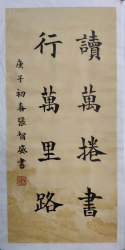 讀萬捲書
行萬里路
庚子初春張智盛書